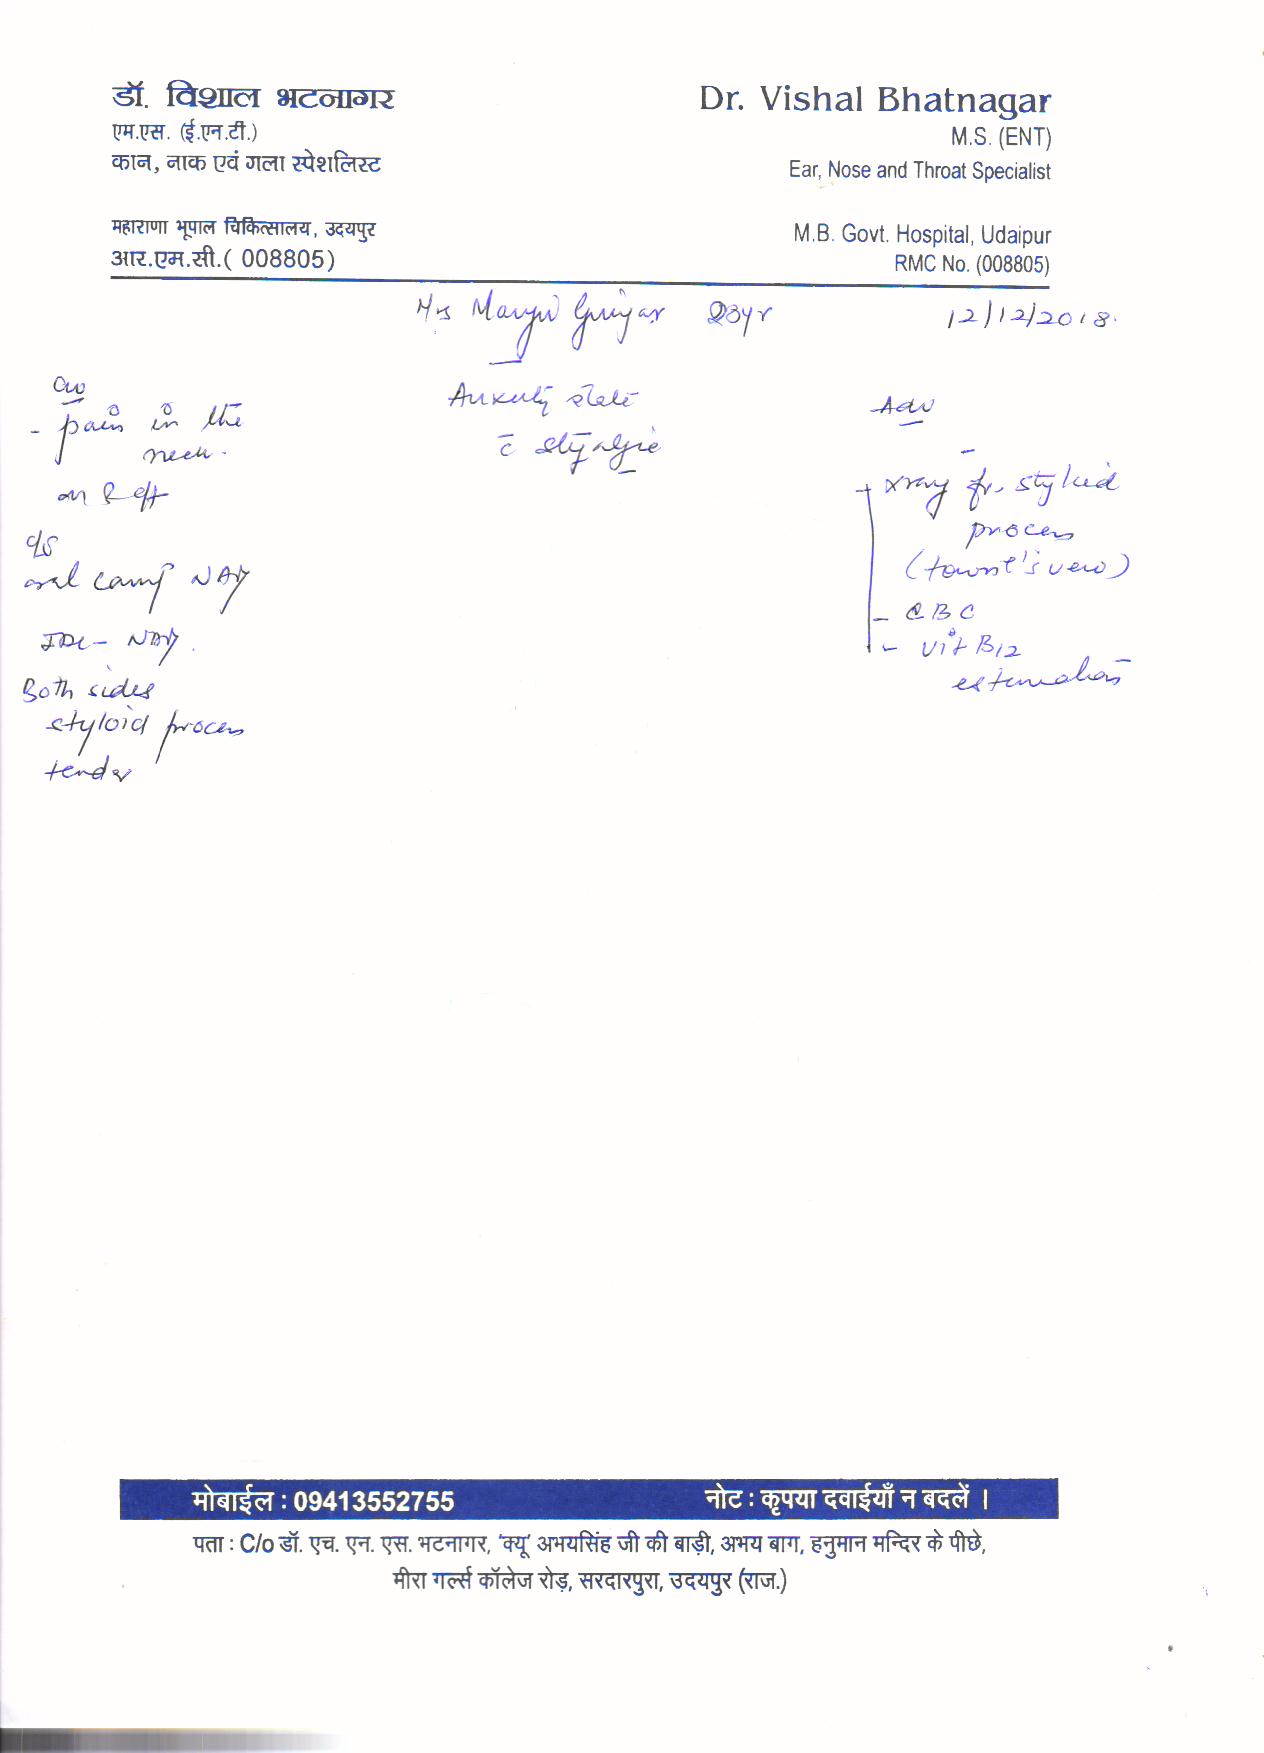 डॉ. विशाल भटनागर
एम.एस. (ई.एन.टी.)
कान, नाक एवं गला स्पेशलिस्ट
महाराणा भूपाल चिकित्सालय, उदयपुर
आर.एम.सी.( 008805)
Dr. Vishal Bhatnagar
M.S. (ENT)
Ear, Nose and Throat Specialist
M.B. Govt. Hospital, Udaipur
RMC No. (008805)
Mrs Gurjar 23yr 12/12/2018.
- pain in the
neck.
on
oral NAD
IDL - NAD.
Both sides
styloid process
tender
Anxiety state
c̄ stylalgia
Adv
- xray for styloid
process
(townt's view)
- CBC
- Vit B12
estimation
मोबाईल : 09413552755 नोट : कृपया दवाईयाँ न बदलें ।
पता : C/o डॉ. एच. एन. एस. भटनागर, 'क्यू' अभयसिंह जी की बाड़ी, अभय बाग, हनुमान मन्दिर के पीछे,
मीरा गर्ल्स कॉलेज रोड़, सरदारपुरा, उदयपुर (राज.)